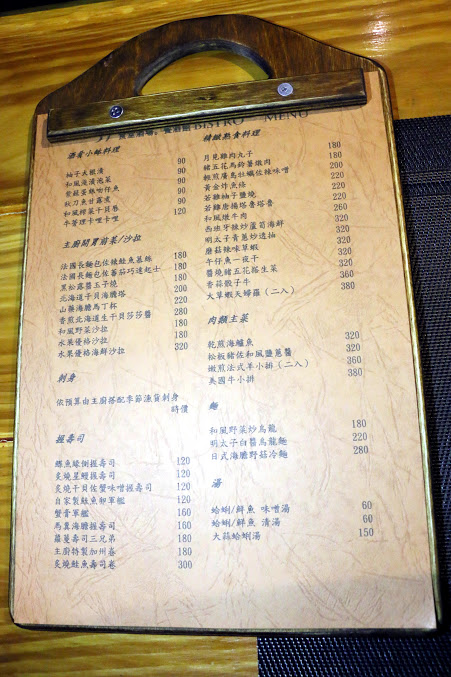 BISTRO MENU
酒肴小缽料理
柚子大根漬 90
和風淺漬泡菜 90
紫蘇蔓缽吻仔魚 90
秋刀魚甘露煮 90
和風柑菜干貝卷 120
牛蒡理卡哩卡哩
主廚開胃前菜/沙拉
法國長麵包佐辣鮭魚蔥絲 180
法國長麵包佐蕃茄巧達起士 180
黑松露醬玉子燒 200
北海道子貝海膽塔 220
山藥海膽馬丁杯 280
香煎北海道生干貝莎莎醬 280
和風野菜沙拉 180
水果優格沙拉 180
水果優格海鮮沙拉 320
刺身
依預算由主廚搭配季節漁貨刺身
時價
握壽司
鰹魚緣側握壽司 120
炙燒星鰻握壽司 120
炙燒干貝佐蟹味噌握壽司 120
自家製鮭魚卵軍艦 120
蟹膏軍艦 160
馬糞海膽握壽司 160
羅蔓壽司三兄弟 180
主廚特製加州卷 180
炙燒鮭魚壽司卷 300
精緻熱食料理
月見雞肉丸子 180
豬五花馬鈴薯燉肉 180
輕煎廣島牡蠣佐辣味噌 200
黃金炸魚條 220
若雞柚子鹽燒 220
若雞唐揚塔魯塔魯 220
和風燉牛肉 260
西班牙辣炒蘆筍海鮮 280
明太子青蔥炒透抽 280
蘑菇辣味草蝦 280
午仔魚一夜干 280
醬燒豬五花搖生菜 360
香蒜骰子牛 360
大草蝦天婦羅(二入) 380
肉類主菜
乾煎海鱸魚 320
松板豬佐和風鹽蔥醬 320
嫩煎法式羊小排(二入) 360
美國牛小排 380
麵
和風野菜炒烏龍 180
明太子白醬烏龍麵 220
日式海膽野菇冷麵 280
湯
蛤蜊/鮮魚 味噌湯 60
蛤蜊/鮮魚 清湯 60
大蒜蛤蜊湯 150